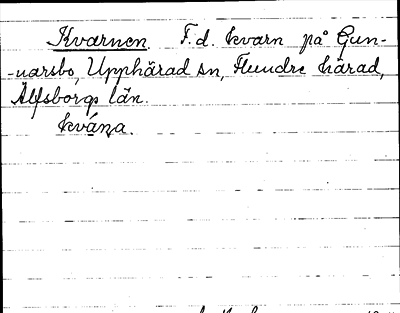 Kvarnen. F.d. kvarn på Gun-
-narsbo, Upphärad sn, Flundre härad,
Älfsborgs län.
kvána.